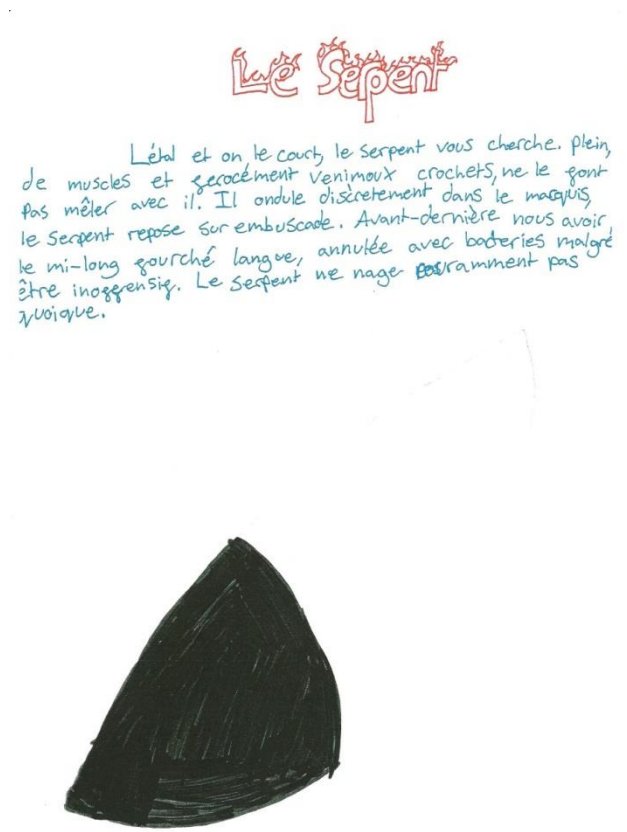 Le Serpent
Létal et on, le court, le serpent vous cherche. Plein,
de muscles et gerocément venimoux crochets, ne le gont
pas mêler avec il. Il ondule discretement dans le marquis,
le serpent repose sur embuscade. Avant-dernière nous avoir,
le mi-long gourché langue, annulée avec bacteries malgré
être inoggensig. Le serpent ne nage couramment pas
quoique.